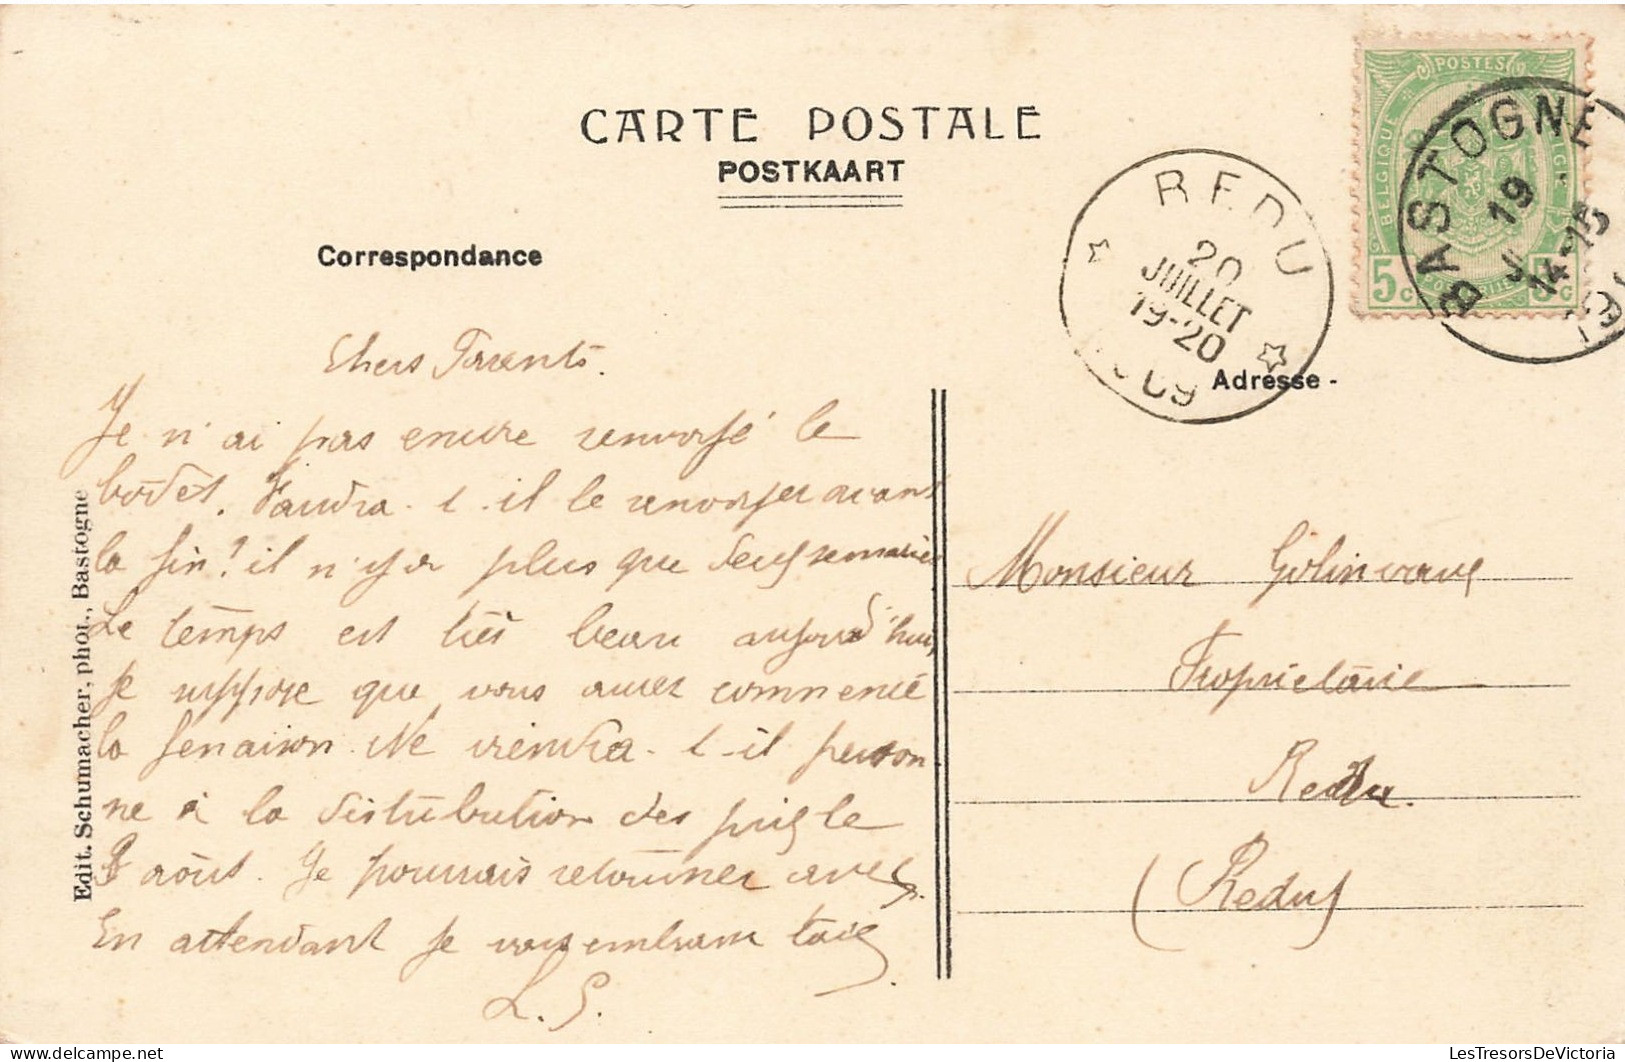 CARTE POSTALE
POSTKAART
Correspondance
POSTES
BELGIQUE
5 c
5 c
BASTOGNE
19
14-15
REDU
20
JUILLET
19-20
Adresse -
Chers Parents.
Je n'ai pas encore renvoyé le
bodet. Faudra-t-il le renvoyer avant
la fin? il n'y a plus que deux semaines
Le temps est très beau aujourd'hui,
je suppose que vous aurez commencé
la fenaison. Ne viendra-t-il person
ne à la distribution des prix le
août. Je pourrais retourner avec.
En attendant je vous embrasse tous
L. G.
Monsieur Golinvaux
Propriétaire
Redu.
(Redu)
Edit. Schumacher, phot., Bastogne
delcampe.net
LesTresorsDeVictoria